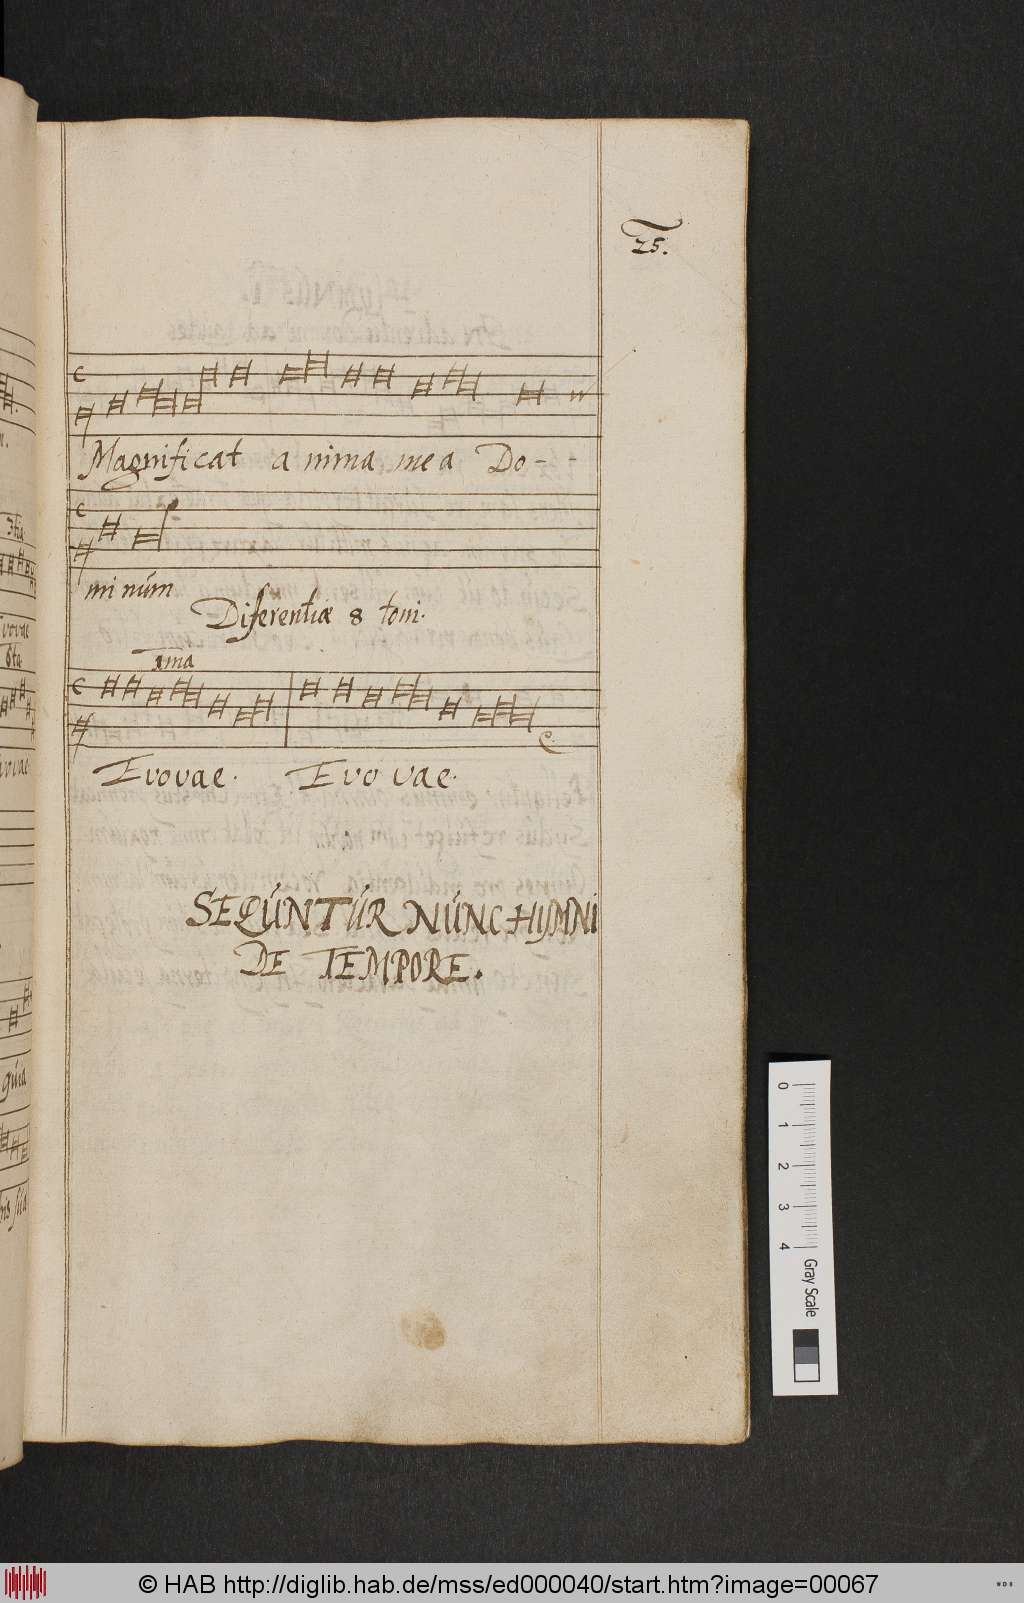 25.
Magnificat anima mea Do- -
minúm
Diferentiæ 8 toni.
1ma
Evovae. Evovae.
SEQÚNTÚR NÚNC HYMNI
DE TEMPORE.
3tia
vovae
6ta
vovae
quia
0 1 2 3 4 Gray Scale
© HAB http://diglib.hab.de/mss/ed000040/start.htm?image=00067